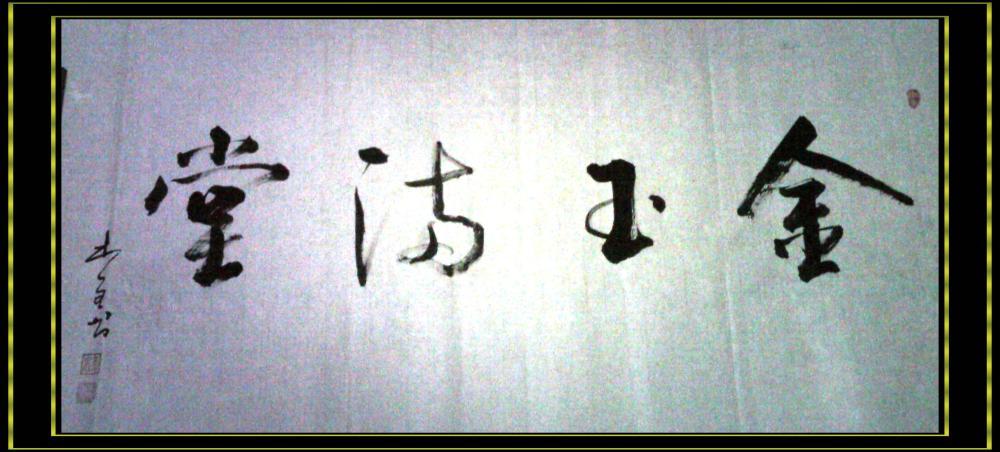 金玉满堂